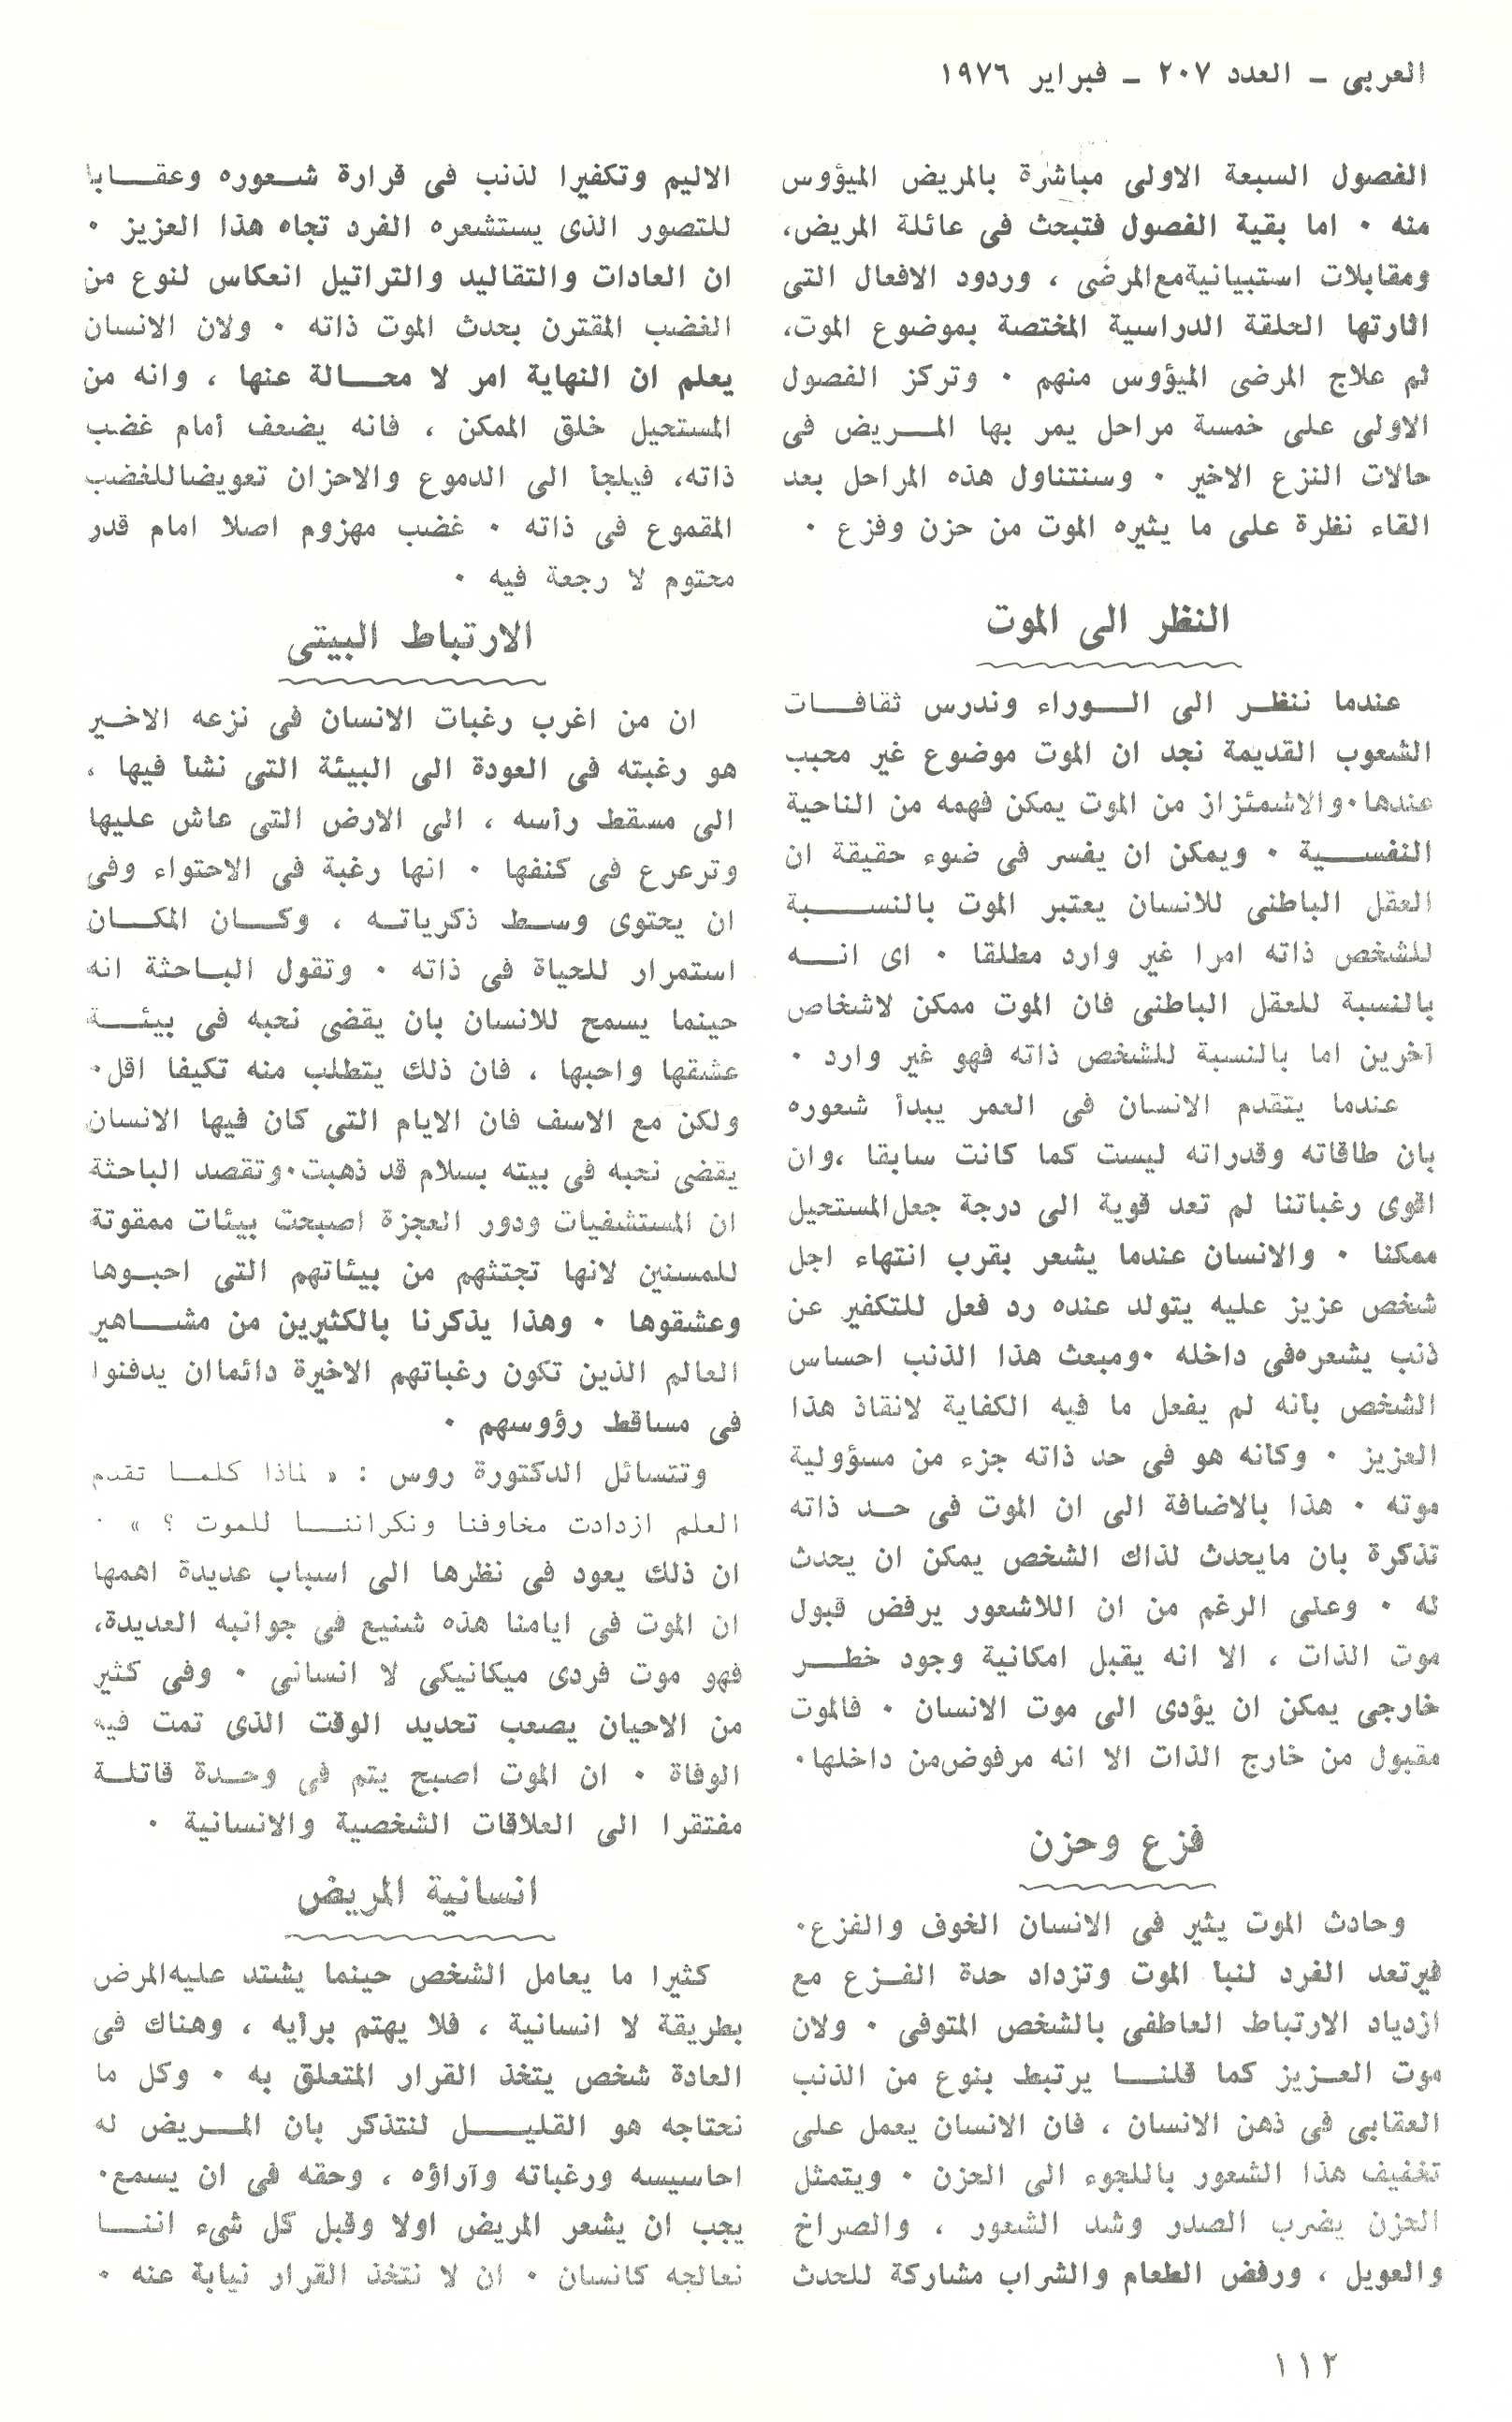 العربى ـ العدد ٢٠٧ ـ فبراير ١٩٧٦
الفصول السبعة الاولى مباشرة بالمريض الميؤوس
منه ٠ اما بقية الفصول فتبحث فى عائلة المريض،
ومقابلات استبيانية مع المرضى ، وردود الافعال التى
اثارتها الحلقة الدراسية المختصة بموضوع الموت،
ثم علاج المرضى الميؤوس منهم ٠ وتركز الفصول
الاولى على خمسة مراحل يمر بها المريض فى
حالات النزع الاخير ٠ وسنتناول هذه المراحل بعد
القاء نظرة على ما يثيره الموت من حزن وفزع ٠
النظر الى الموت
عندما ننظر الى الوراء وندرس ثقافات
الشعوب القديمة نجد ان الموت موضوع غير محبب
عندها٠والاشمئزاز من الموت يمكن فهمه من الناحية
النفسية ٠ ويمكن ان يفسر فى ضوء حقيقة ان
العقل الباطنى للانسان يعتبر الموت بالنسبة
للشخص ذاته امرا غير وارد مطلقا ٠ اى انه
بالنسبة للعقل الباطنى فان الموت ممكن لاشخاص
آخرين اما بالنسبة للشخص ذاته فهو غير وارد ٠
عندما يتقدم الانسان فى العمر يبدأ شعوره
بان طاقاته وقدراته ليست كما كانت سابقا ،وان
اقوى رغباتنا لم تعد قوية الى درجة جعل المستحيل
ممكنا ٠ والانسان عندما يشعر بقرب انتهاء اجل
شخص عزيز عليه يتولد عنده رد فعل للتكفير عن
ذنب يشعره فى داخله ٠ومبعث هذا الذنب احساس
الشخص بأنه لم يفعل ما فيه الكفاية لانقاذ هذا
العزيز ٠ وكأنه هو فى حد ذاته جزء من مسؤولية
موته ٠ هذا بالاضافة الى ان الموت فى حد ذاته
تذكرة بان مايحدث لذاك الشخص يمكن ان يحدث
له ٠ وعلى الرغم من ان اللاشعور يرفض قبول
موت الذات ، الا انه يقبل امكانية وجود خطر
خارجى يمكن ان يؤدى الى موت الانسان ٠ فالموت
مقبول من خارج الذات الا انه مرفوض من داخلها٠
فزع وحزن
وحادث الموت يثير فى الانسان الخوف والفزع٠
فيرتعد الفرد لنبأ الموت وتزداد حدة الفزع مع
ازدياد الارتباط العاطفى بالشخص المتوفى ٠ ولان
موت العزيز كما قلنا يرتبط بنوع من الذنب
العقابى فى ذهن الانسان ، فان الانسان يعمل على
تخفيف هذا الشعور باللجوء الى الحزن ٠ ويتمثل
الحزن بضرب الصدر وشد الشعور ، والصراخ
والعويل ، ورفض الطعام والشراب مشاركة للحدث
الاليم وتكفيرا لذنب فى قرارة شعوره وعقابا
للتصور الذى يستشعره الفرد تجاه هذا العزيز ٠
ان العادات والتقاليد والتراتيل انعكاس لنوع من
الغضب المقترن بحدث الموت ذاته ٠ ولان الانسان
يعلم ان النهاية امر لا محالة عنها ، وانه من
المستحيل خلق الممكن ، فانه يضعف أمام غضب
ذاته، فيلجأ الى الدموع والاحزان تعويضا للغضب
المقموع فى ذاته ٠ غضب مهزوم اصلا امام قدر
محتوم لا رجعة فيه ٠
الارتباط البيتى
ان من اغرب رغبات الانسان فى نزعه الاخير
هو رغبته فى العودة الى البيئة التى نشأ فيها ،
الى مسقط رأسه ، الى الارض التى عاش عليها
وترعرع فى كنفها ٠ انها رغبة فى الاحتواء وفى
ان يحتوى وسط ذكرياته ، وكان المكان
استمرار للحياة فى ذاته ٠ وتقول الباحثة انه
حينما يسمح للانسان بان يقضى نحبه فى بيئة
عشقها واحبها ، فان ذلك يتطلب منه تكيفا اقل٠
ولكن مع الاسف فان الايام التى كان فيها الانسان
يقضى نحبه فى بيته بسلام قد ذهبت٠وتقصد الباحثة
ان المستشفيات ودور العجزة اصبحت بيئات ممقوتة
للمسنين لانها تجتثهم من بيئاتهم التى احبوها
وعشقوها ٠ وهذا يذكرنا بالكثيرين من مشاهير
العالم الذين تكون رغباتهم الاخيرة دائما ان يدفنوا
فى مساقط رؤوسهم ٠
وتتسائل الدكتورة روس : « لماذا كلما تقدم
العلم ازدادت مخاوفنا ونكراننا للموت ؟ » ٠
ان ذلك يعود فى نظرها الى اسباب عديدة اهمها
ان الموت فى ايامنا هذه شنيع فى جوانبه العديدة،
فهو موت فردى ميكانيكى لا انسانى ٠ وفى كثير
من الاحيان يصعب تحديد الوقت الذى تمت فيه
الوفاة ٠ ان الموت اصبح يتم فى وحدة قاتلة
مفتقرا الى العلاقات الشخصية والانسانية ٠
انسانية المريض
كثيرا ما يعامل الشخص حينما يشتد عليه المرض
بطريقة لا انسانية ، فلا يهتم برأيه ، وهناك فى
العادة شخص يتخذ القرار المتعلق به ٠ وكل ما
نحتاجه هو القليل لنتذكر بان المريض له
احاسيسه ورغباته وآراؤه ، وحقه فى ان يسمع٠
يجب ان يشعر المريض اولا وقبل كل شىء اننا
نعالجه كانسان ٠ ان لا نتخذ القرار نيابة عنه ٠
١١٢